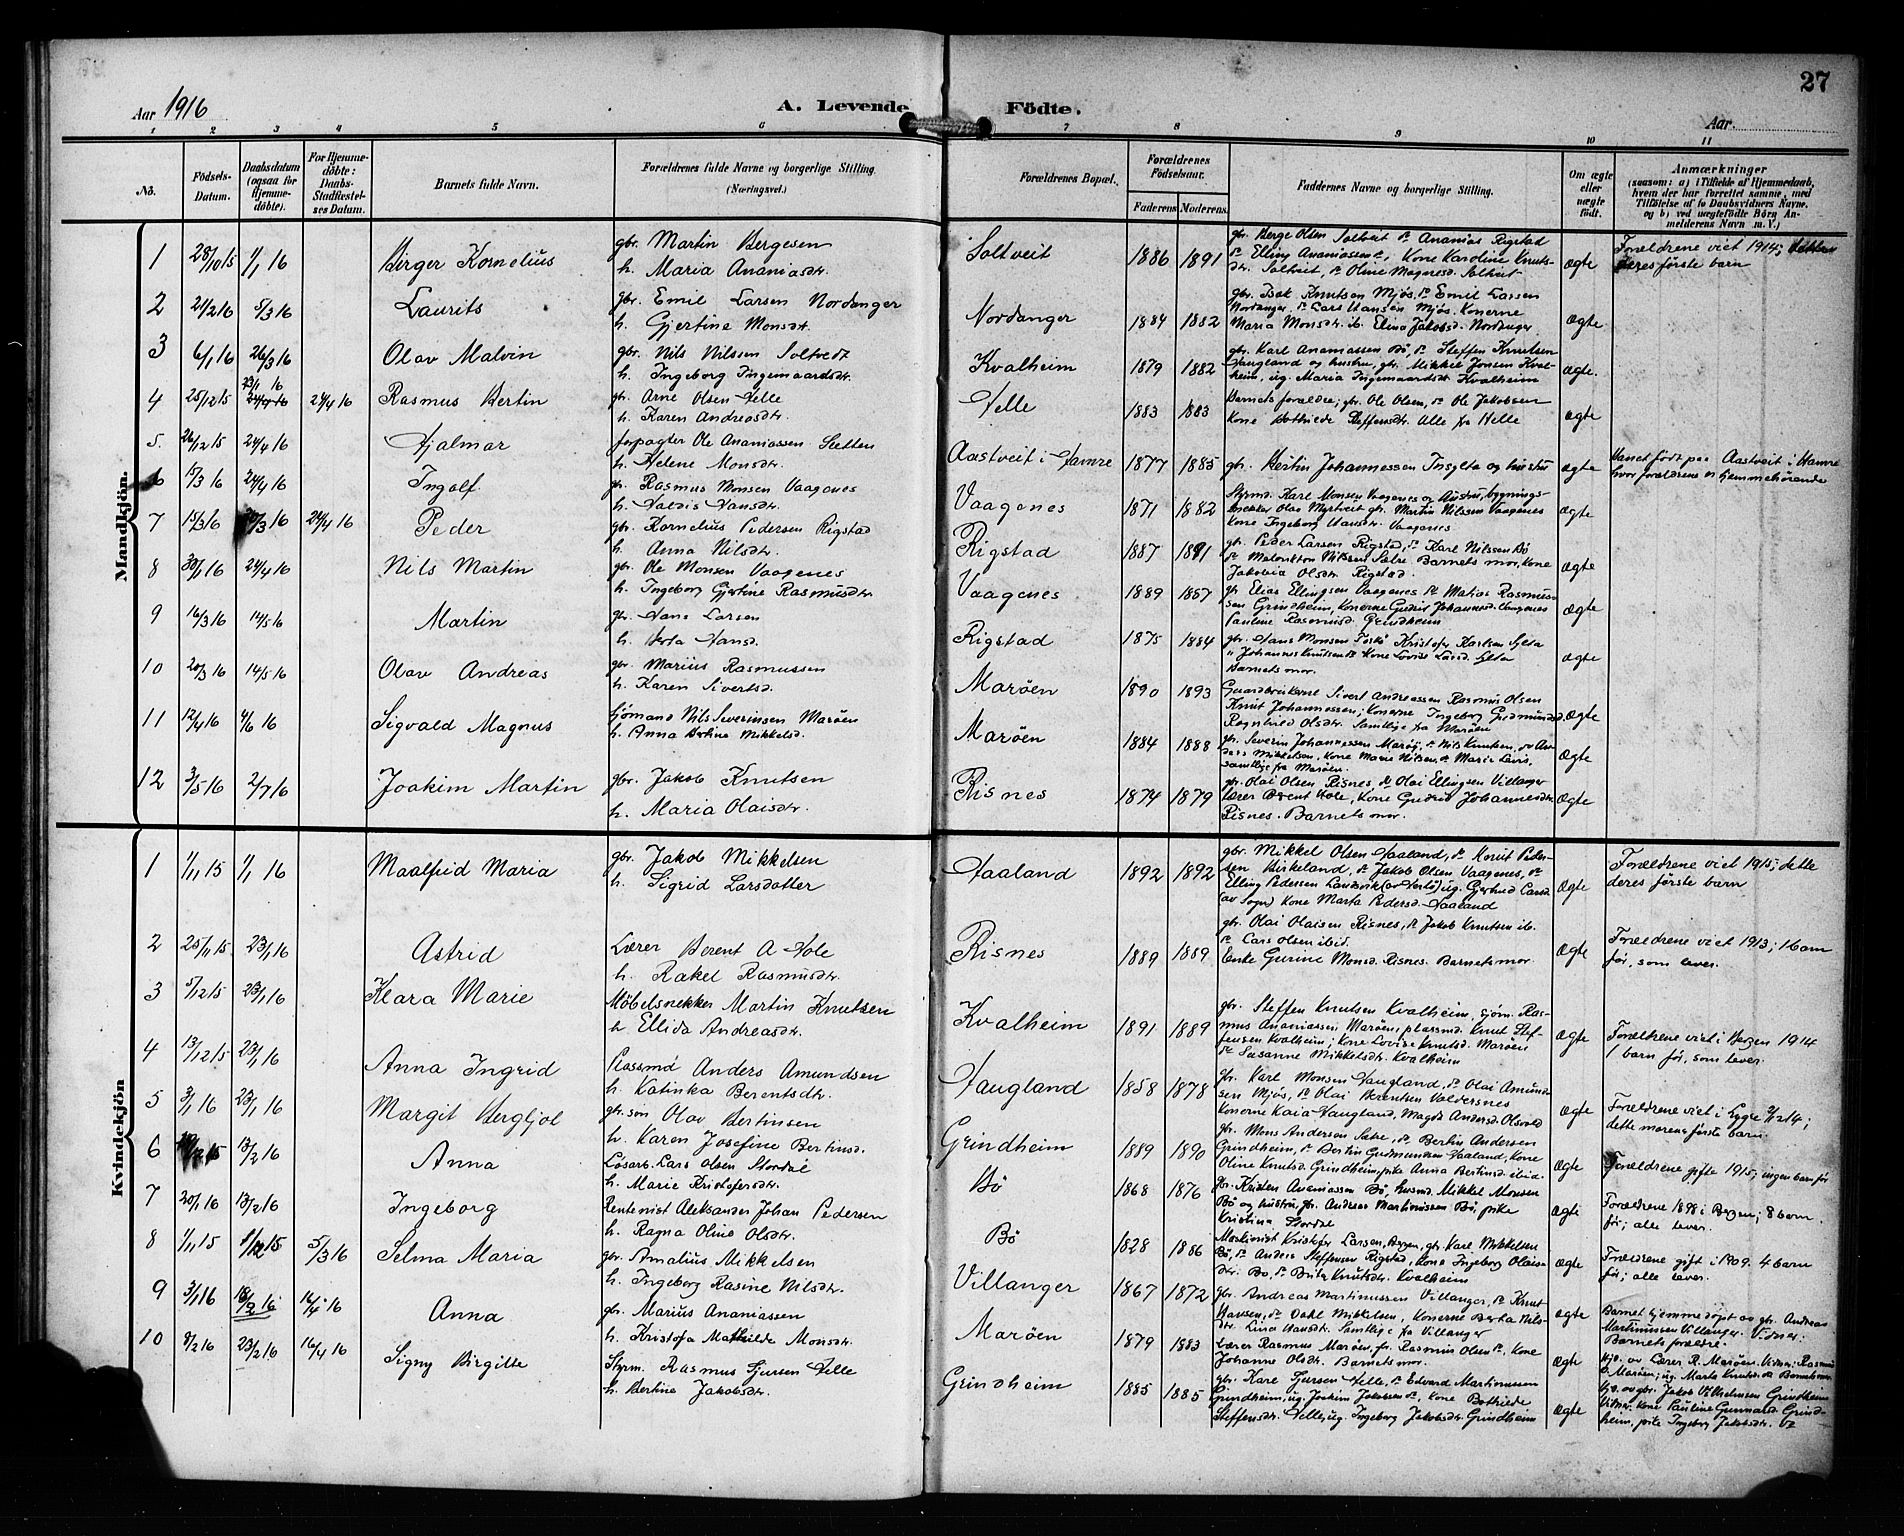 27
Aar 1916
A. Levende Födte.
Aar.
1 2 3 4 5 6 7 8 9 10 11
No.
Födsels-Datum.
Daabsdatum (ogsaa for Hjemmedöbte).
For Hjemmedöbte: Daabs-Stadfestelses Datum.
Barnets fulde Navn.
Forældrenes fulde Navne og borgerlige Stilling. (Næringsvei.)
Forældrenes Bopæl.
Forældrenes Födselsaar.
Faderens Moderens
Faddernes Navne og borgerlige Stilling.
Om ægte eller uægte födt.
Anmærkninger
(saasom: a) i Tilfælde af Hjemmedaab, hvem der har forrettet samme, med Tilföielse af to Daabsvidners Navne, og b) ved uægtefödte Börn Anmelderens Navn m. V.)
Mandkjön.
1 28/10 15 1/1 16 Birger Kornelius gbr. Martin Bergesen
h. Maria Ananiasdtr.
Soltveit 1886 1891
gbr. Berge Olsen Soltveit Ananias Rigstad
ægte
Forældrene viet 1914;
deres første barn
2 21/2 16 5/3 16 Laurits gbr. Emil Larsen Nordanger
h. Gjertine Monsdtr.
Nordanger 1884 1882
gbr. Isak Knutsen Mjøs, Emil Larsen
Nordanger. Lars Hansen Mjøs. Konerne
Maria Monsdtr. ib. Elina Jakobsd. Nordanger
ægte
3 6/1 16 26/3 16 Olav Malvin gbr. Nils Nilssen Soltvedt
h. Ingeborg Ingemaardsdtr.
Kvalheim 1879 1882
gbr. Karl Ananiassen Bö, Steffen Knutsen
Haugland og hustru, gbr. Mikkel Jonsen Kvalheim, ug. Maria Ingemaardsdtr. Kvalheim
ægte.
4 25/12 15 23/1 16 24/4 16 Rasmus Bertin gbr. Arne Olsen Helle
h. Karen Andreasdtr.
Helle 1883 1883
Barnets forældre; gbr. Ole Olsen, Ole Jakobsen
Kone Bothilde Steffensdtr. Alle fra Helle
ægte
5. 26/12 15 24/4 16 Hjalmar forpagter Ole Ananiassen Sletten
h. Helene Monsdtr.
Aastveit i Hamre 1877 1885
gbr. Bertin Johannessen Insylta og hustru
ægte
Barnet født paa Aastveit i Hamre
hvor forældrene er hjemmehørende
6 15/3 16 24/4 16 Ingolf gbr. Rasmus Monsen Vaagenes
h. Valdis Hansdtr.
Vaagenes 1871 1882
Styrmd. Karl Monsen Vaagenes og hustru, bygningssnekker Olav Myrtveit gbr. Martin Nilssen Vaagenes
Kone Ingeborg Hansdtr. Vaagenes
ægte
7 15/3 16 /3 16 24/4 16 Peder gbr. Kornelius Pedersen Rigstad
h. Anna Nilsdtr.
Rigstad 1887 1891
gbr. Peder Larsen Rigstad, Karl Nilssen Bö
Nilssen Sætre Barnets mor, Kone
Jakobia Olsdtr. Rigstad.
ægte
8 30/1 16 24/4 16 Nils Martin gbr. Ole Monsen Vaagenes
h. Ingeborg Gjertine Rasmusdtr
Vaagenes 1889 1857
gbr. Elias Ellingsen Vaagenes Matias Rasmussen Grindheim, Konerne Gudrid Johannesd. Vaagenes
Pauline Rasmusd. Grindheim
ægte
9 16/3 16 14/5 16 Martin gbr. Hans Larsen
h. Berta Hansd.
Rigstad 1875 1884
gbr. Hans Monsen Toskö Kristofer Karlsen Sylta
" Johannes Knutsen Kone Lovise Larsd. Sylta
Barnets mor.
ægte
10 20/3 16 14/5 16 Olav Andreas gbr. Marius Rasmussen
h. Karen Sivertsd.
Maröen 1890 1893
Gaardbrukerne Sivert Andreassen Rasmus Olsen
Knut Johannessen; Konerne Ingeborg Gudmundsd.
Ragnhild Olsdtr. Samtlige fra Maröen
ægte
11 12/4 16 4/6 16 Sigvald Magnus Sjömand Nils Severinsen Maröen
h. Anna Bertine Mikkelsd.
Maröen 1884 1888
gbr. Severin Johannessen Marøy, Nils Knutsen, Anders Mikkelsen, Kone Marie Nilsen, Marie Larsd.
samtlige fra Maröen.
ægte
12 3/5 16 2/7 16 Joakim Martin gbr. Jakob Knutsen
h. Maria Olaisdtr.
Risnes 1874 1879
gbr. Olai Olsen Risnes, Olai Ellingsen Villanger
Lærer Berent Hole, Kone Gudrid Johannesdtr.
Risnes. Barnets mor.
ægte
Kvindekjön
1 1/11 15 1/1 16 Maalfrid Maria gbr. Jakob Mikkelsen
h. Sigrid Larsdatter
Haaland 1892 1892
gbr. Mikkel Olsen Haaland, Knut Pedersen Birkeland, Jakob Olsen Vaagenes,
Elling Pedersen Landsvik (av Herlö) ug. Gjertrud Larsd.
(av Sogn) Kone Marta Pedersd. Haaland
ægte
Forældrene viet 1915; dette
deres første barn
2 25/11 15 23/1 16 Astrid Lærer Berent A Hole
h. Rakel Rasmusdtr.
Risnes 1889 1889
gbr. Olai Olaisen Risnes, Jakob Knutsen ib.
Lars Olsen ibid.
Enke Gurine Monsd. Risnes. Barnets mor
ægte
Forældrene viet 1913; 1 barn
før, som lever.
3 5/12 15 23/1 16 Klara Marie Møbelsnekker Martin Knutsen
h. Ellida Andreasdtr.
Kvalheim 1891 1889
gbr. Steffen Knutsen Kvalheim, sjøm. Rasmus Ananiassen Maröen, plassmd. Knut Steffensen Kvalheim; Kone Lovise Knutsd. Maröen
Susanne Mikkelsdtr. Kvalheim
ægte
Forældrene viet i Bergen 1914
1 barn før, som lever.
4 13/12 15 23/1 16 Anna Ingrid Plassmd Anders Amundsen
h. Katinka Berentsdtr.
Haugland 1858 1878
gbr. Karl Monsen Haugland, Olai Amundsen Mjös, Olai Berentsen Valdersnes
Konerne Kaia Haugland, Magda Andersd. Olsvold
ægte
5 3/1 16 23/1 16 Margit Bergljot gbr. søn Olav Bertinsen
h. Karen Josefine Bertinsd.
Grindheim 1889 1890
gbr. Mons Andersen Sætre, Bertin Andersen
Grindheim, Bertin Gudmundsen Haaland, Kone
Oline Knutsd. Grindheim, pike Anna Bertinsd. ibid.
ægte
Forældrene viet i Lygre 7/12 14;
dette morens første barn.
6 /12 15 13/2 16 Anna Løsarb. Lars Olsen Stordal
h. Marie Kristofersdtr.
Bö 1868 1876
gbr. Kristen Ananiassen Bö, husmd. Mikkel Monsen
Bö og hustru, gbr. Andreas Martinussen Bö, pike
Kristina Stordal
ægte
Forældrene gifte 1915; ingen barn før
7 20/1 16 13/2 16 Ingeborg Rentenist Aleksander Johan Pedersen
h. Ragna Oline Olsdtr.
Bö 1828 1886
Maskinist Kristofer Larsen, Bergen, gbr. Karl Mikkelsen
Bö, Anders Steffensen Rigstad, Kone Ingeborg Olaisdtr. Bö, Brita Knutsdtr. Kvalheim
ægte
Forældrene 1898 i Bergen; 8 barn
før; alle lever.
8 1/11 15 1/12 15 5/3 16 Selma Maria gbr. Annalius Mikkelsen
h. Ingeborg Rasine Nilsdtr.
Villanger 1867 1872
gbr. Andreas Martinussen Villanger, Knut
Havsen, Dahl Mikkelsen, Konerne Berta Nilsdtr. Lina Hansdtr. Samtlige fra Villanger
ægte
Forældrene gift i 1909. 4 barn
før; alle lever.
9 3/1 16 18/2 16 16/4 16 Anna gbr. Marius Ananiassen
h. Kristofa Mathilde Monsdtr.
Maröen 1879 1883
Lærer Rasmus Maröen, gbr. Rasmus Olsen, Kone
Johanne Olsdtr. Barnets mor.
ægte
Barnet hjemmedöpt av gbr. Andreas
Martinussen Villanger. Vidner:
Barnets forældre.
10 8/2 16 23/2 16 16/4 16 Signy Birgitte Styrm. Rasmus Sjursen Helle
h. Bertine Jakobsdtr.
Grindheim 1885 1885
gbr. Karl Sjursen Helle, Edvard Martinussen
Grindheim, ug. Joakim Jakobsen, Kone Bothilde
Steffensdtr. Helle, ug. Ingeborg Jakobsdtr. Grindheim
ægte
Hjd. av Lærer R. Maröen. Vidner: Rasmus
Maröen; ug. Marta Knutsd. Barnets mor.
Hjd. av gbr. Jakob Vilhelmsen Grindheim
Vidner: Kone Pauline Gunnarsd. Grindheim, pike Ingeborg Jakobsdtr.